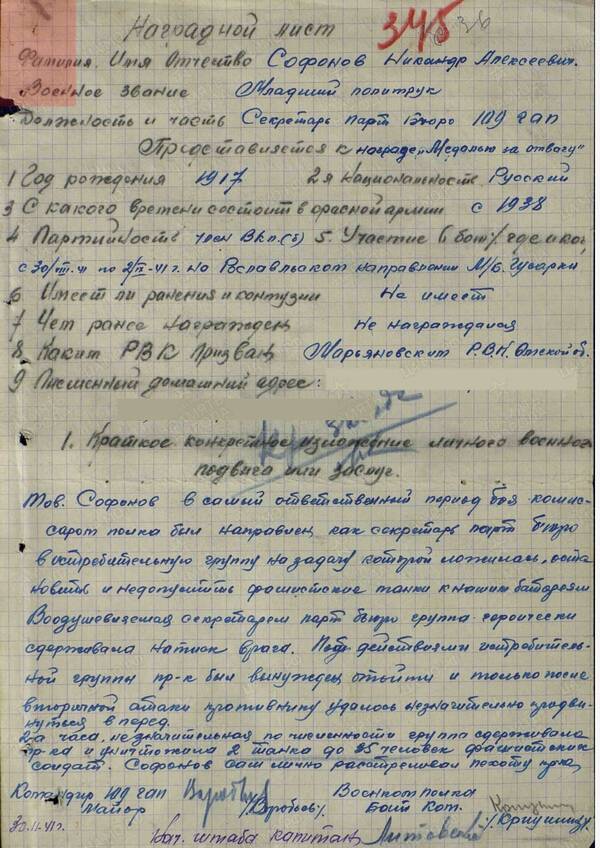 345
36
Наградной лист
Фамилия, Имя Отчество Софонов Никандр Алексеевич.
Военное звание Младший политрук
Должность и часть Секретарь парт бюро 109 гап
Представляется к награде „Медалью за отвагу"
1 Год рождения 1917 2я Национальность Русский
3 С какого времени состоит в красной армии с 1938
4 Партийность член ВКП(б) 5. Участие в боях где и ког
на Рославльском направлении
6 Имеет ли ранения и контузии Не имеет
7 Чем ранее награжден Не награждался
8 Каким РВК призван Марьяновским Р.В.К. Омской об.
9 Письменный домашний адрес:
1. Краткое конкретное изложение личного военного
подвига или заслуг.
Тов. Софонов в самый ответственный период боя комис-
саром полка был направлен как секретарь парт бюро
в истребительную группу на задачу которой ложилась, оста
новить и недопустить фашистские танки к нашим батареям
Воодушевляемая секретарем парт бюро группа героически
сдерживала натиск врага. Под действиями истребитель-
ной группы пр-к был вынужден отойти и только после
вторичной атаки противнику удалось незначительно продви-
нуться вперед.
2-а часа, незначительная по численности группа сдерживала
пр-ка и уничтожила 2 танка до 35 человек фашистских
солдат. Софонов сам лично расстреливал пехоту
Командир 109 гап Военком полка
Майор /Воробьев/ Бат Ком.
Нач. штаба капитан